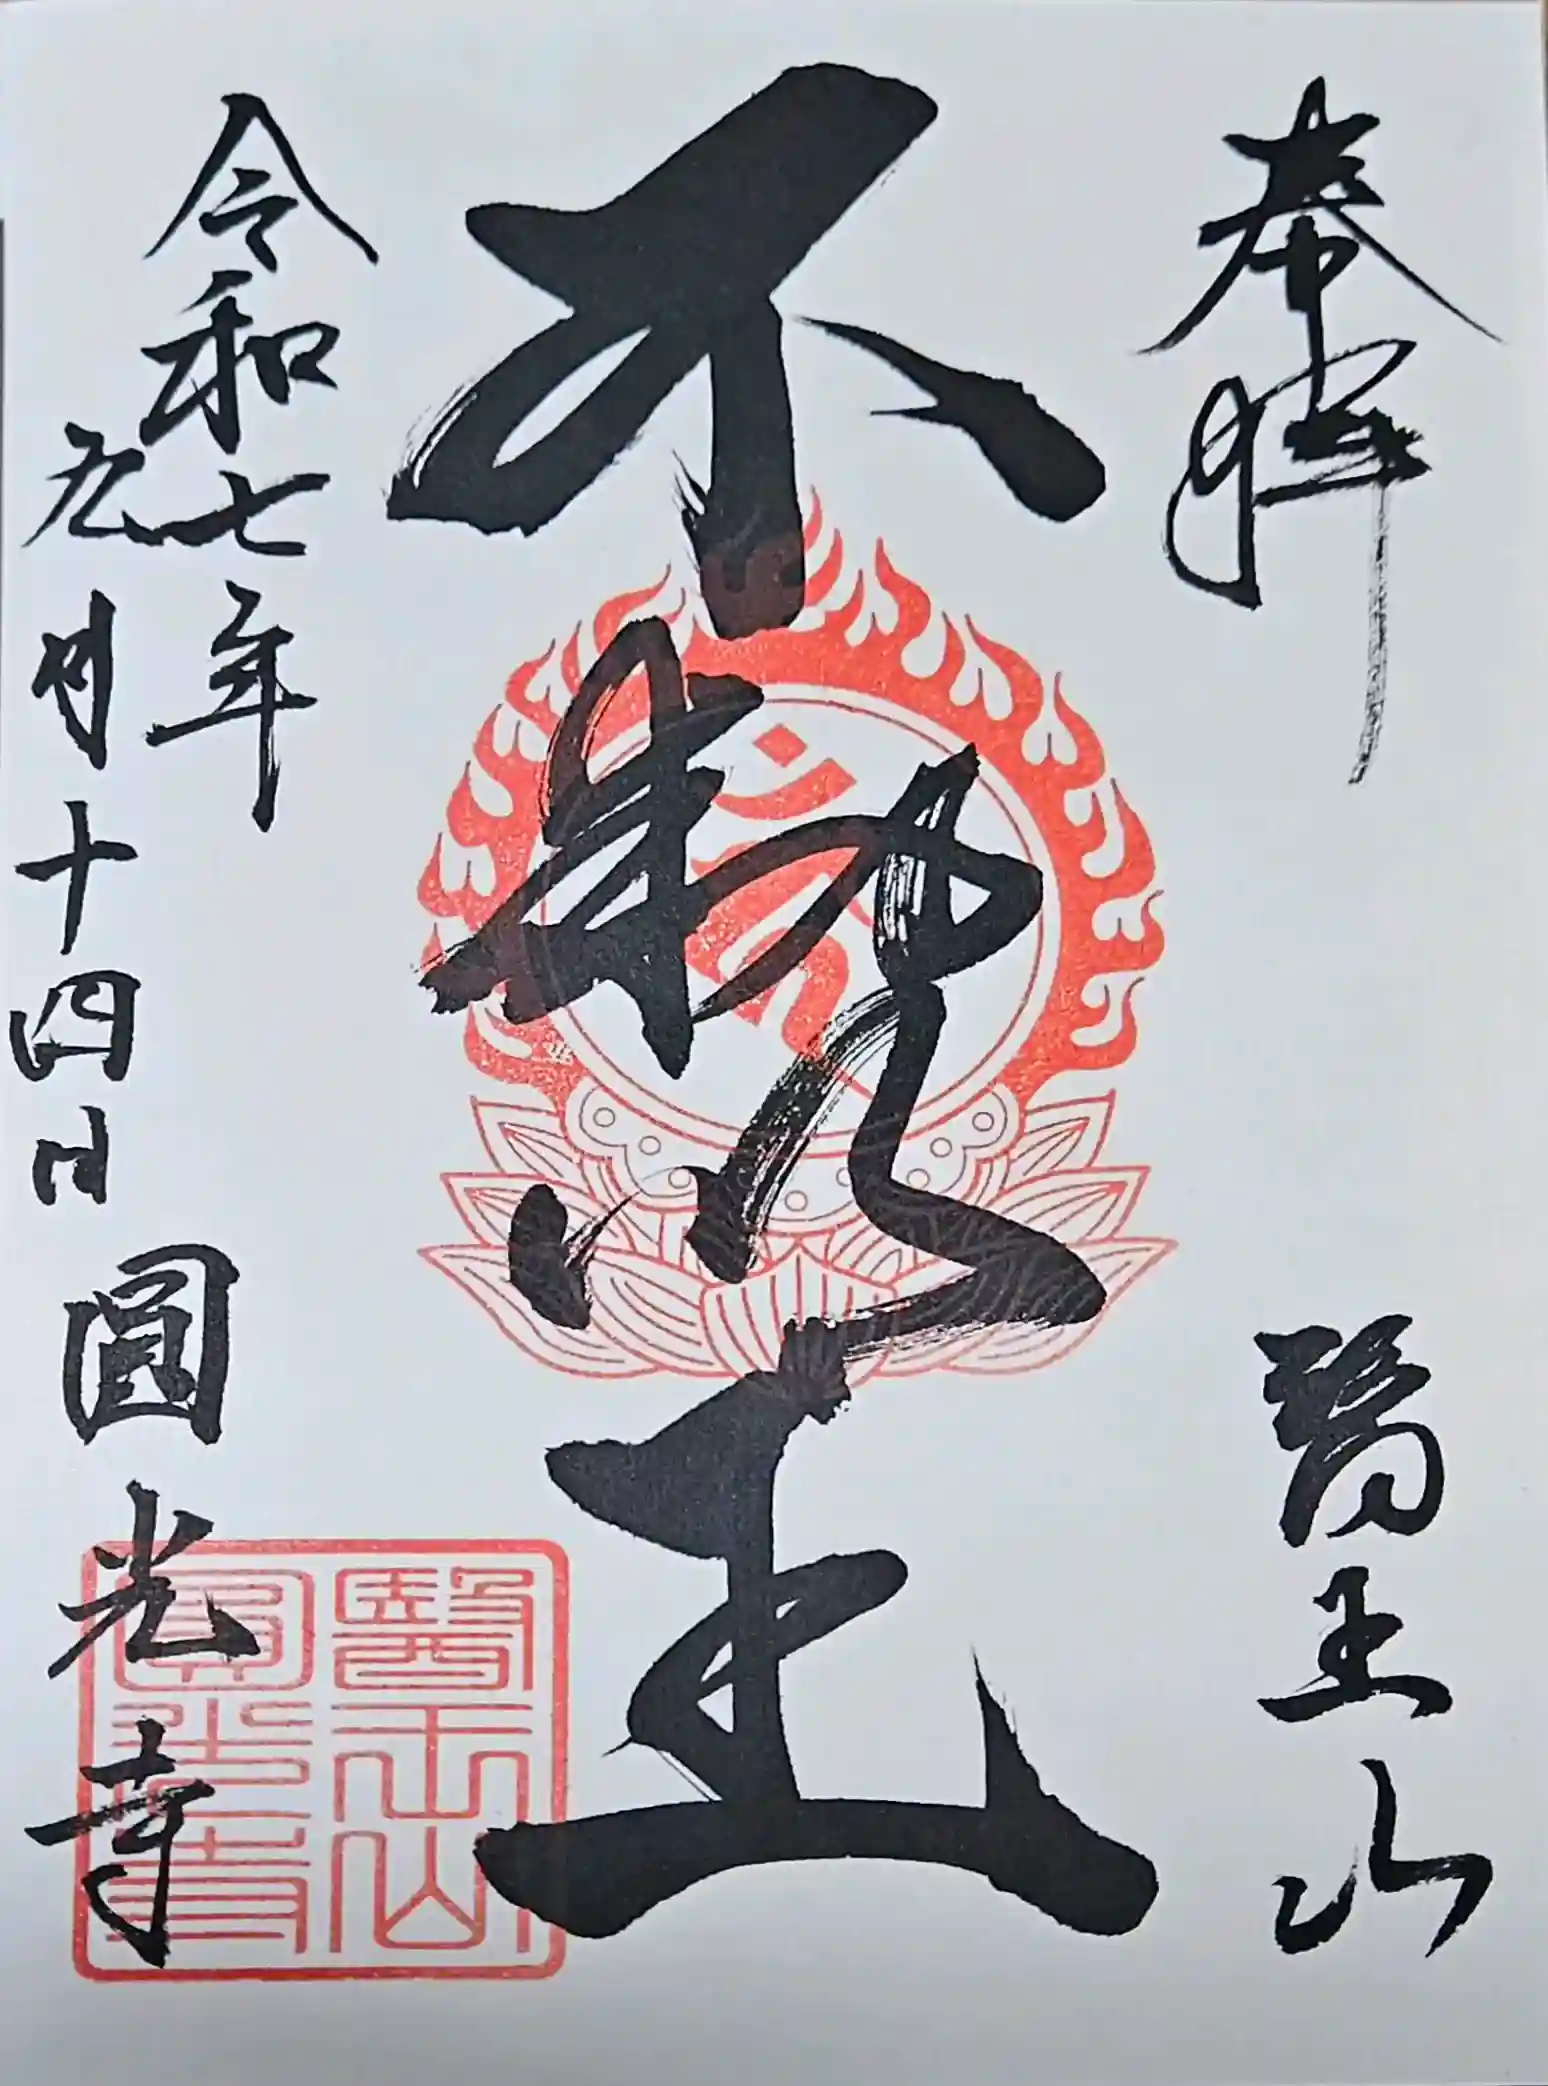 奉拝
醫王山
不動明王
令和七年
九月十四日
圓光寺
醫王山
圓光寺